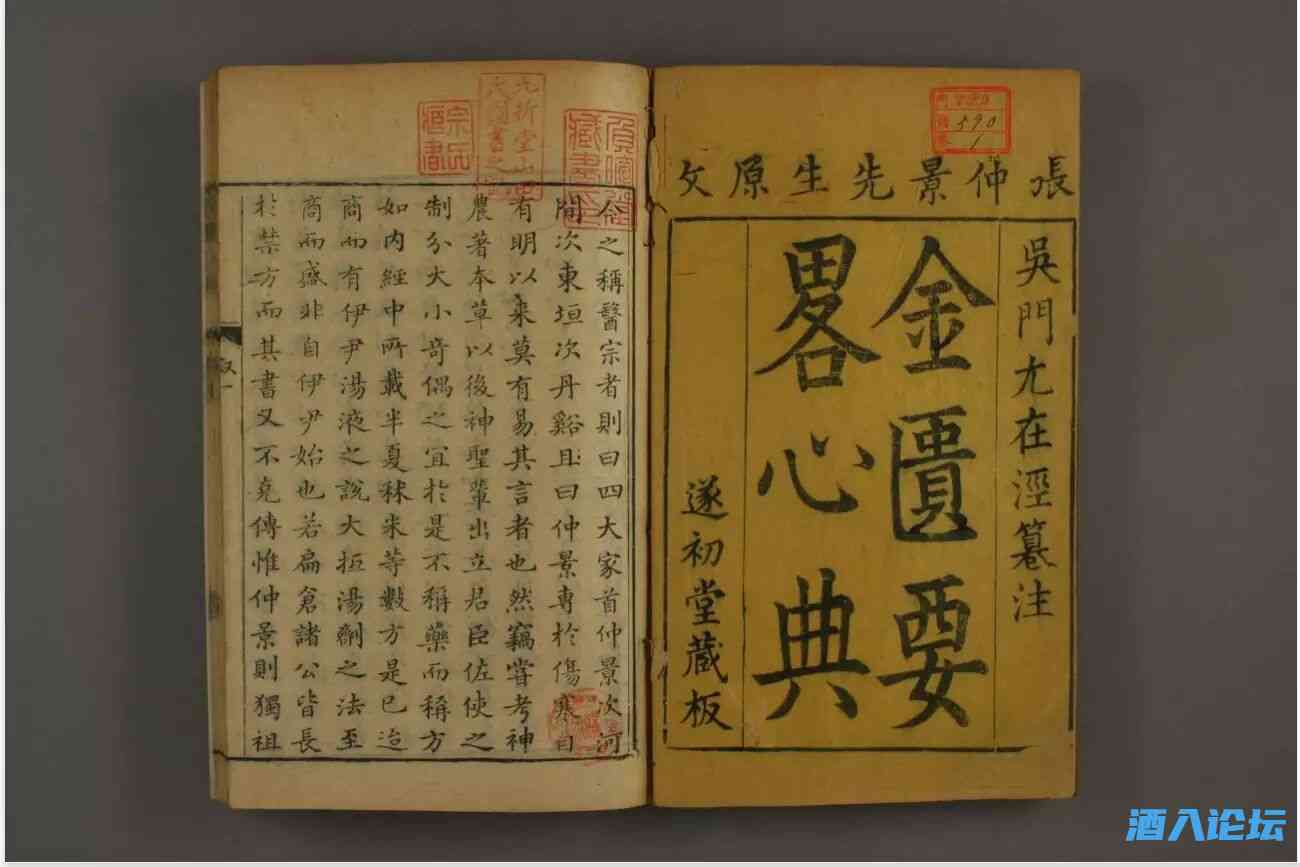 張仲景先生原文
吳門尤在涇纂注
金匱要
畧心典
遂初堂藏板
590
1
今之稱醫宗者則曰四大家首仲景次河
間次東垣次丹谿且曰仲景專於傷寒自
有明以来莫有易其言者也然竊嘗考神
農著本草以後神聖輩出立君臣佐使之
制分大小竒偶之宜於是不稱藥而稱方
如内經中所載半夏秫米等數方是已迨
商而有伊尹湯液之說大抵湯劑之法至
商而盛非自伊尹始也若扁倉諸公皆長
於禁方而其書又不克傳惟仲景則獨祖
叙
一
宗氏
藏書
九折堂山田
氏圖書之記
藏書
酒入论坛